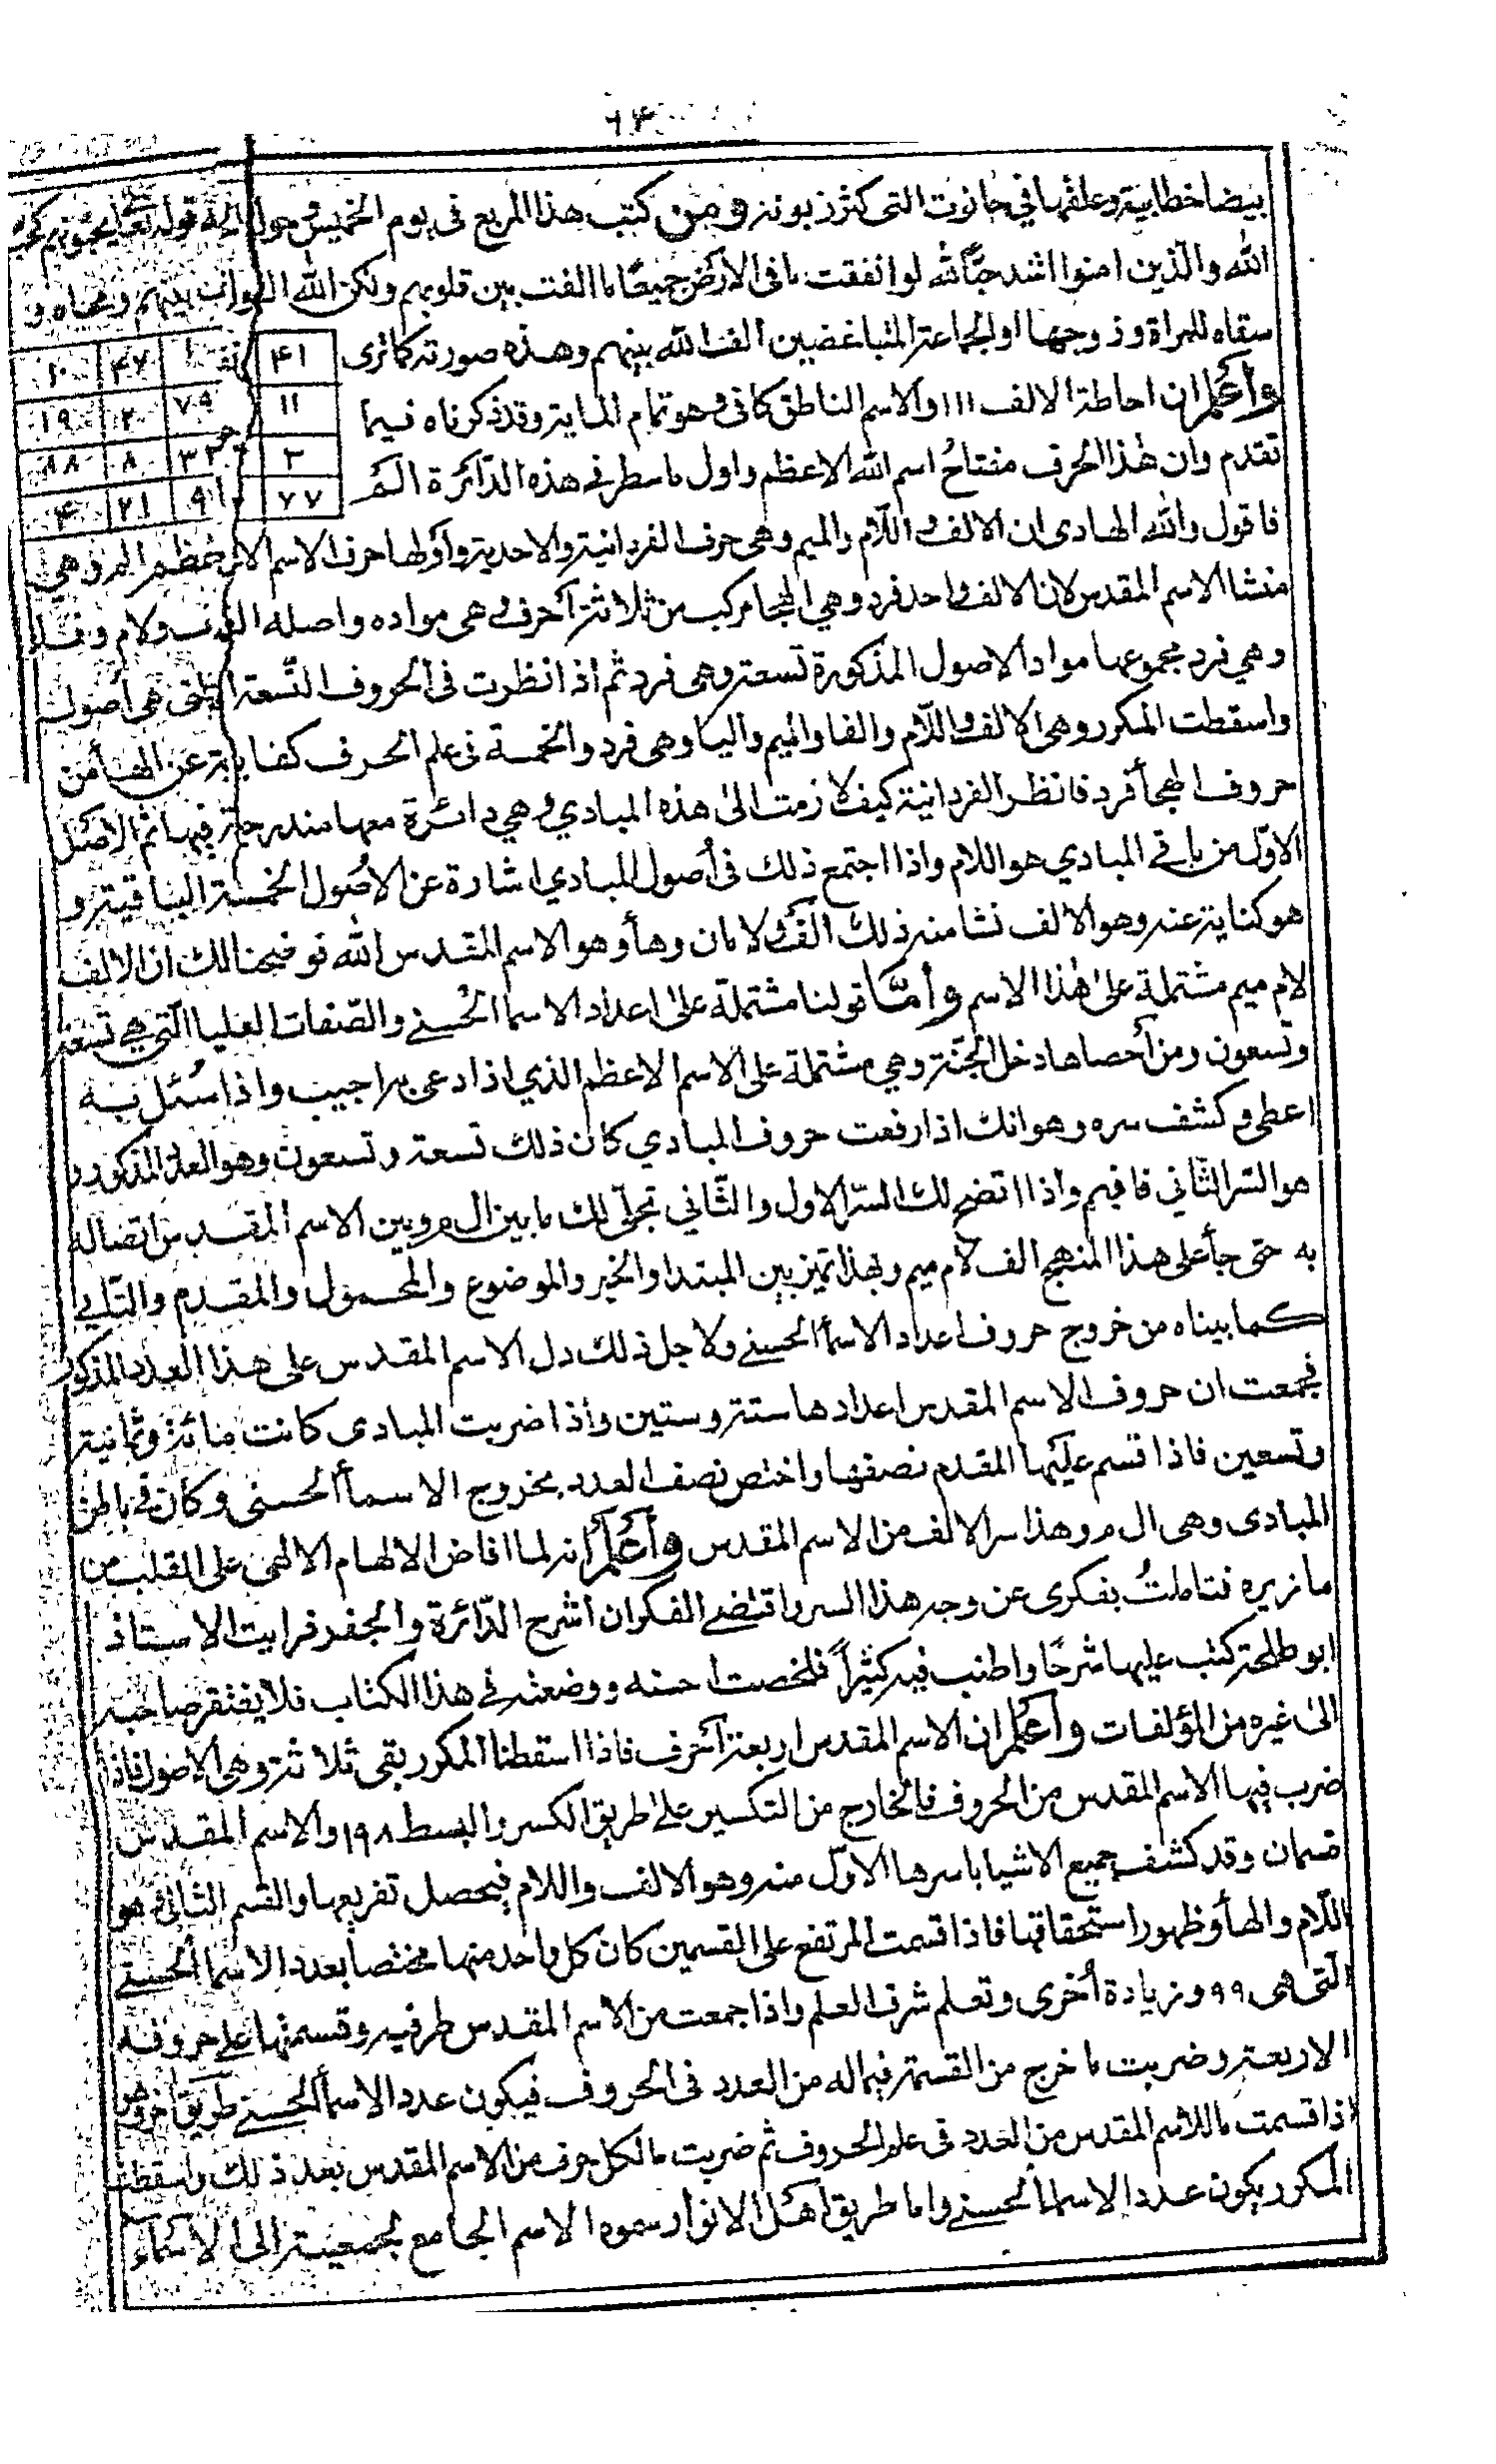 ٦٤
بيضا خطابية وعلقها في حانوت التى كثر زبونه ومن كتب هذا المربع فى يوم الخميس وحواليه قوله تعالى يحبونهم كحب
الله والذين امنوا اشد حبا لله لو انفقت ما فى الارض جميعا ما الفت بين قلوبهم ولكن الله الف بينهم ومحاه و
سقاه للمراة وزوجها او لجماعة المتباغضين الف الله بينهم وهذه صورته كما ترى
واعلم ان احاطة الالف ١١١ والاسم الناطق كافى وهو تمام الماية وقد ذكرناه فيما
تقدم وان هذا الحرف مفتاح اسم الله الاعظم واول ما سطر فى هذه الدائرة الم
٤١ ٤٧ ١٠
١١ ٧٩ ٢٠ ١٩
٣ ٣٢ ٨ ٨٨
٧٧ ٩١ ٢١ ٤
فاقول والله الهادى ان الالف واللام والميم وهى حرف الفردانية والاحدية واولها حرف الاسم الاعظم الذى هى
منشا الاسم المقدس لان الالف واحد فرد وهي الهجا مركب من ثلاثة احرف هى مواده واصله الف ولام وفا
وهي فرد مجموعها مواد الاصول المذكورة تسعة وهى فرد ثم اذا نظرت فى الحروف التسعة التى هى اصول
واسقطت المكرر وهى الالف واللام والفا والميم واليا وهى فرد والخمسة فى علم الحرف كفاية عن الهاء من
حروف الهجا فرد فانظر الفردانية كيف لازمت الى هذه المبادي وهي دائرة معها مندرجة فيها ثم الاصل
الاول من باقي المبادي هو اللام واذا اجتمع ذلك فى اصول المبادي اشارة عن الاصول الخمسة الباقية و
هو كناية عنه وهو الالف نشا منه ذلك الف ولامان وها وهو الاسم المقدس الله فوضحنا لك ان الالف
لام ميم مشتملة على هذا الاسم واما قولنا مشتملة على اعداد الاسما الحسنى والصفات العليا التي هي تسعة
وتسعون ومن احصاها دخل الجنة وهي مشتملة على الاسم الاعظم الذي اذا دعى به اجيب واذا سئل به
اعطى وكشف سره وهو انك اذا رفعت حروف المبادي كان ذلك تسعة وتسعون وهو العدد المذكور و
هو السر الثاني فافهم واذا اتضح لك السر الاول والثاني تجلى لك ما بين ال م وبين الاسم المقدس اتصاله
به حتى جاء على هذا المنهج الف لام ميم وبهذا تميز بين المبتدا والخبر والموضوع والمحمول والمقدم والتالي
كما بيناه من خروج حروف اعداد الاسما الحسنى ولاجل ذلك دل الاسم المقدس على هذا العدد المذكور
فجمعت ان حروف الاسم المقدس اعدادها ستة وستين واذا ضربت المبادى كانت مائة وثمانية
وتسعين فاذا قسم عليها المقدم نصفها واختص نصف العدد بخروج الاسما الحسنى وكان فى باطن
المبادى وهى ال م وهذا سر الالف من الاسم المقدس واعلم انه لما افاض الالهام الالهى على القلب من
ما نزيره فتاملت بفكرى عن وجه هذا السر واقتضى الفكر ان اشرح الدائرة والجفر فرايت الاستاذ
ابو طلحة كتب عليها شرحا واطنب فيه كثيرا فلخصت احسنه ووضعته في هذا الكتاب فلا يفتقر صاحبه
الى غيره من المؤلفات واعلم ان الاسم المقدس اربعة احرف فاذا اسقطنا المكرر بقى ثلاثة وهى الاصول فاذا
ضرب فيها الاسم المقدس من الحروف فالخارج من التكسير على طريق الكسر والبسط ١٩٨ والاسم المقدس
قسمان وقد كشف جميع الاشيا باسرها الاول منه وهو الالف واللام فيحصل تفريعها والقسم الثانى هو
اللام والها وظهور استحقاقها فاذا قسمت المرتفع على القسمين كان كل واحد منها مختصا بعدد الاسما الحسنى
التى هى ٩٩ وزيادة اخرى وتعلم شرف العلم واذا جمعت من الاسم المقدس طرفيه وقسمتها على حروفه
الاربعة وضربت ما خرج من القسمة فيما له من العدد فى الحروف فيكون عدد الاسما الحسنى طريق اخر وهو
اذا قسمت ما للاسم المقدس من العدد فى علم الحروف ثم ضربت ما لكل حرف من الاسم المقدس بعد ذلك واسقطت
المكرر يكون عدد الاسما الحسنى واما طريق اهل الانوار سموه الاسم الجامع لجمعيته الى الاسماء